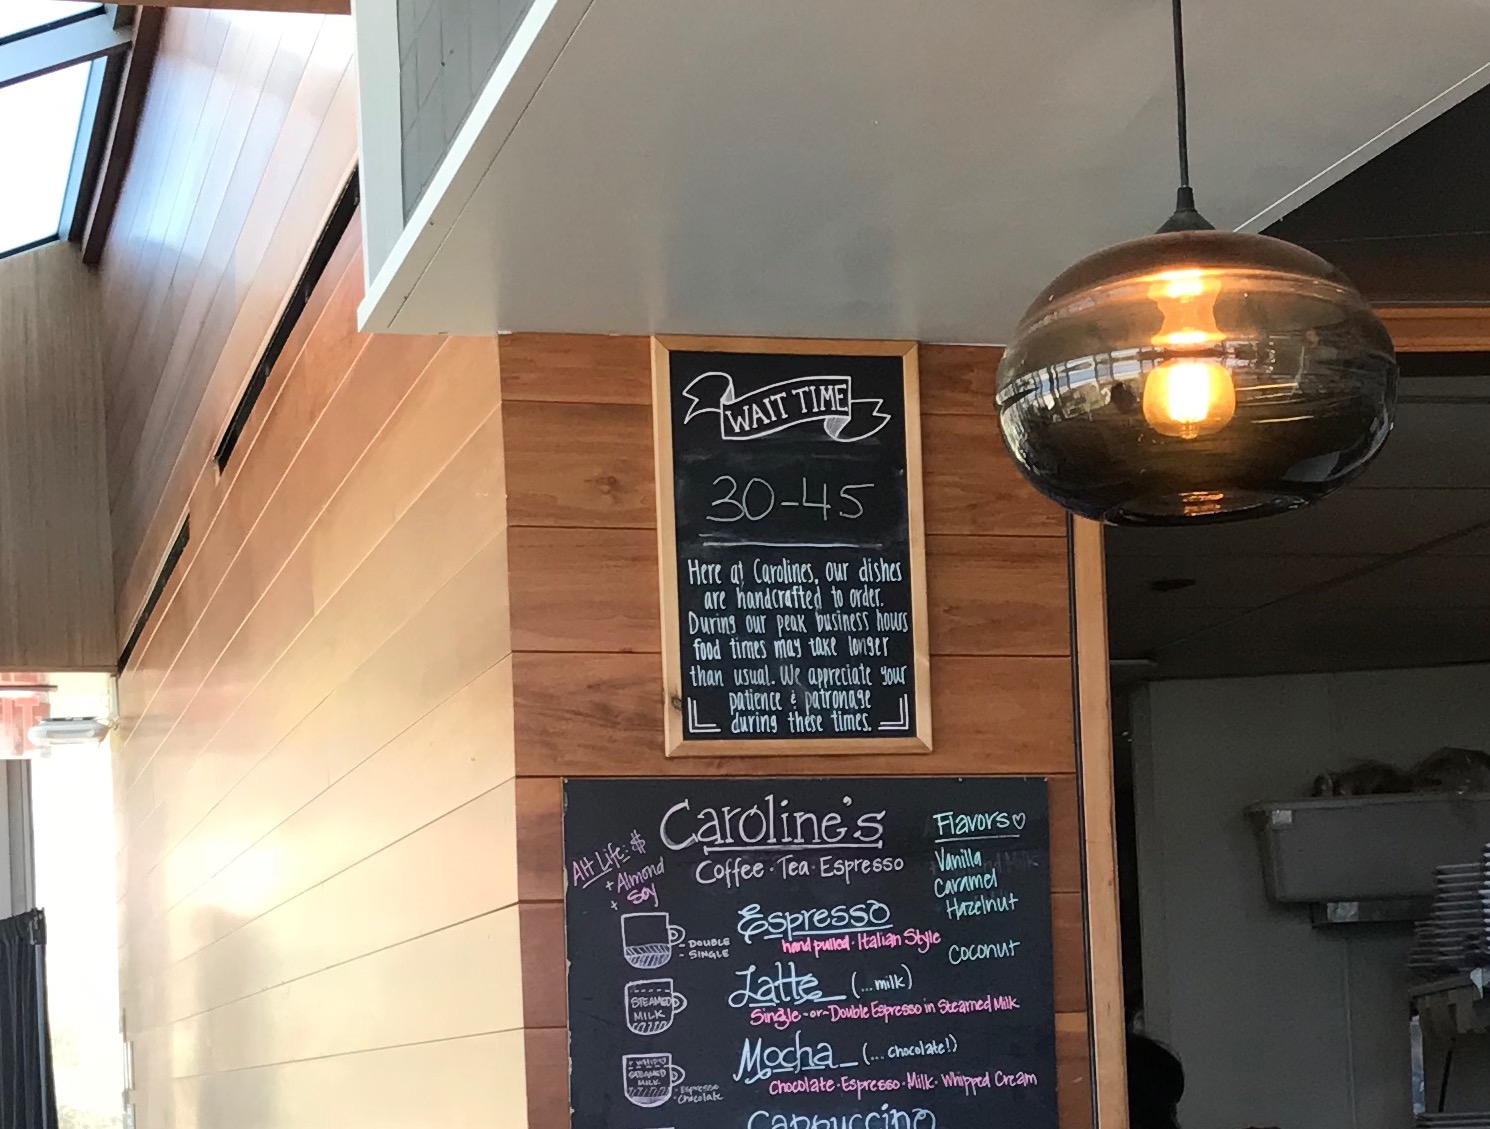 WAIT TIME
30-45
Here at Carolines, our dishes
are handcrafted to order.
During our peak business hours
food times may take longer
than usual. We appreciate your
patience & patronage
during these times.
Caroline's
Coffee · Tea · Espresso
Alt Life: $
+ Almond
+ Soy
Flavors ♡
Vanilla
Caramel
Hazelnut
Coconut
Espresso
hand pulled · Italian Style
- DOUBLE
- SINGLE
Latte (...milk)
Single -or- Double Espresso in Steamed Milk
STEAMED
MILK
Mocha (...chocolate!)
Chocolate · Espresso · Milk · Whipped Cream
STEAMED
MILK
- Espresso
- Chocolate
Cappuccino